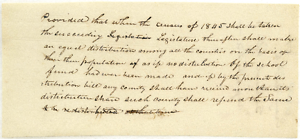 Provided that when the census of 1845 shall be taken
the succeeding Legislature thereafter shall make
an equal distribution among all the counties on the basis of
their then population as if no distribution of the school
fund had ever been made and if by the present dis
tribution bill any county shall have received more than its
distributive share such county shall refund the same
to be redistributed